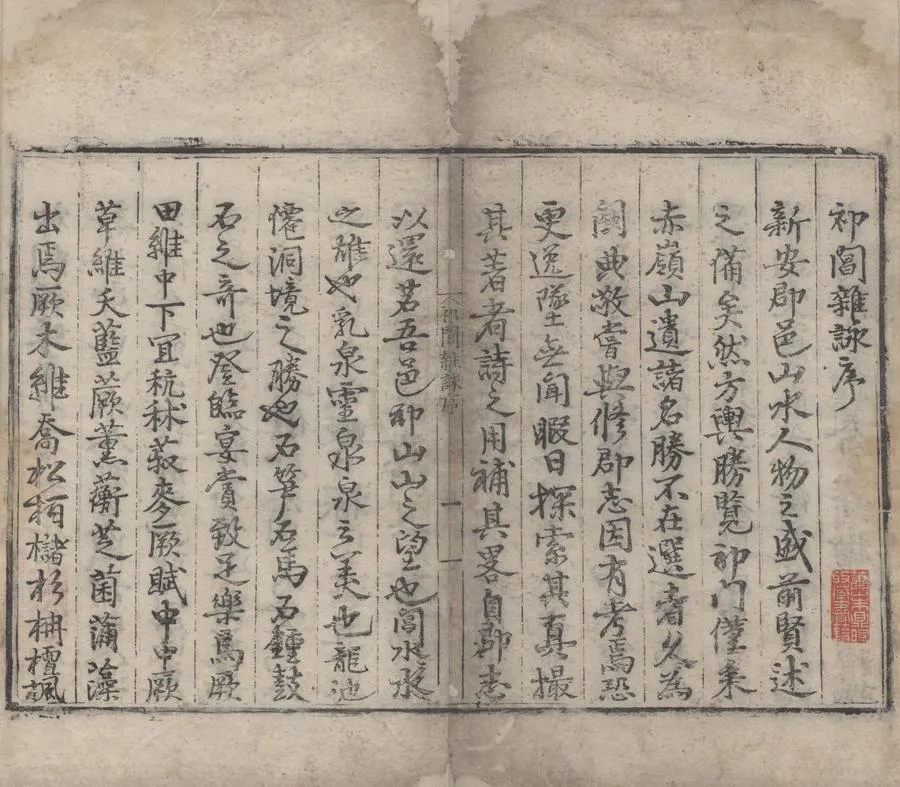 祁閶雜詠序
新安郡邑山水人物之盛前賢述
之備矣然方輿勝覽祁門僅采
赤嶺山遺諸名勝不在選者久為
闕典敬嘗與修郡志因有考焉恐
更逸墜無聞暇日探索其真撮
其著者詩之用補其畧自郡志
祁閶雜詠序
一
以還若吾邑祁山山之望也閶水水
之雄也乳泉靈泉泉之美也龍池
僊洞境之勝也石筍石馬石鍾鼓
石之奇也登臨宴賞致足樂焉厥
田維中下宜秔秫菽麥厥賦中中厥
草維夭藍蕨薰蘅芝菌蒲藻
出焉厥木維喬松栢櫧杉柟檀楓